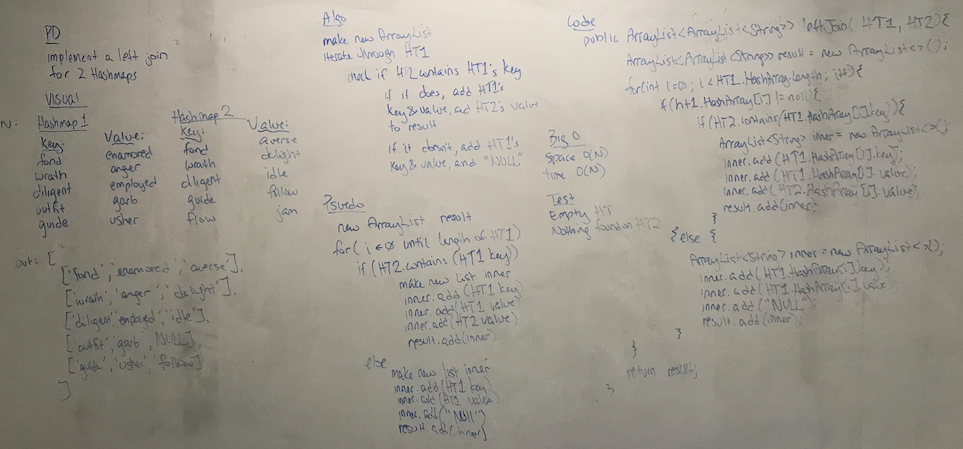 PD
implement a left join
for 2 Hashmaps
Visual
in:
Hashmap 1
Key: Value:
fond enamored
wrath anger
diligent employed
outfit garb
guide usher
Hashmap 2
Key: Value:
fond averse
wrath delight
diligent idle
guide follow
flow jam
out: [
['fond', 'enamored', 'averse'],
['wrath', 'anger', 'delight'],
['diligent', 'employed', 'idle'],
['outfit', 'garb', NULL],
['guide', 'usher', 'follow']
]
Algo
make new ArrayList
iterate through HT1
check if HT2 contains HT1's key
if it does, add HT1's
key & value, ad HT2's value
to result
if it doesn't, add HT1's
key & value, and "NULL"
Psuedo
new ArrayList result
for( i ← 0 until length of HT1)
if (HT2.contains (HT1 key))
make new list inner
inner.add (HT1 key)
inner.add(HT1 value)
inner.add(HT2 value)
result.add(inner)
else
make new list inner
inner.add(HT1 key)
inner.add(HT1 value)
inner.add("Null")
result.add(inner)
Big O
Space O(N)
time O(N)
Test
Empty HT
Nothing found on HT2
Code
public ArrayList<ArrayList<String>> leftJoin( HT1, HT2){
ArrayList<ArrayList<String>> result = new ArrayList<>();
for(int i=0; i<HT1.HashArray.length; i++){
if(ht1.HashArray[i] != null){
if(HT2.contains(HT1.HashArray[i].key)){
ArrayList<String> inner = new ArrayList<>();
inner.add(HT1.HashArray[i].key);
inner.add(HT1.HashArray[i].value);
inner.add(HT2.HashArray[i].value);
result.add(inner);
}
{ else {
ArrayList<String> inner = new ArrayList<>();
inner.add(HT1.HashArray[i].key);
inner.add(HT1.HashArray[i].value);
inner.add("NULL");
result.add(inner);
}
}
return result;
}